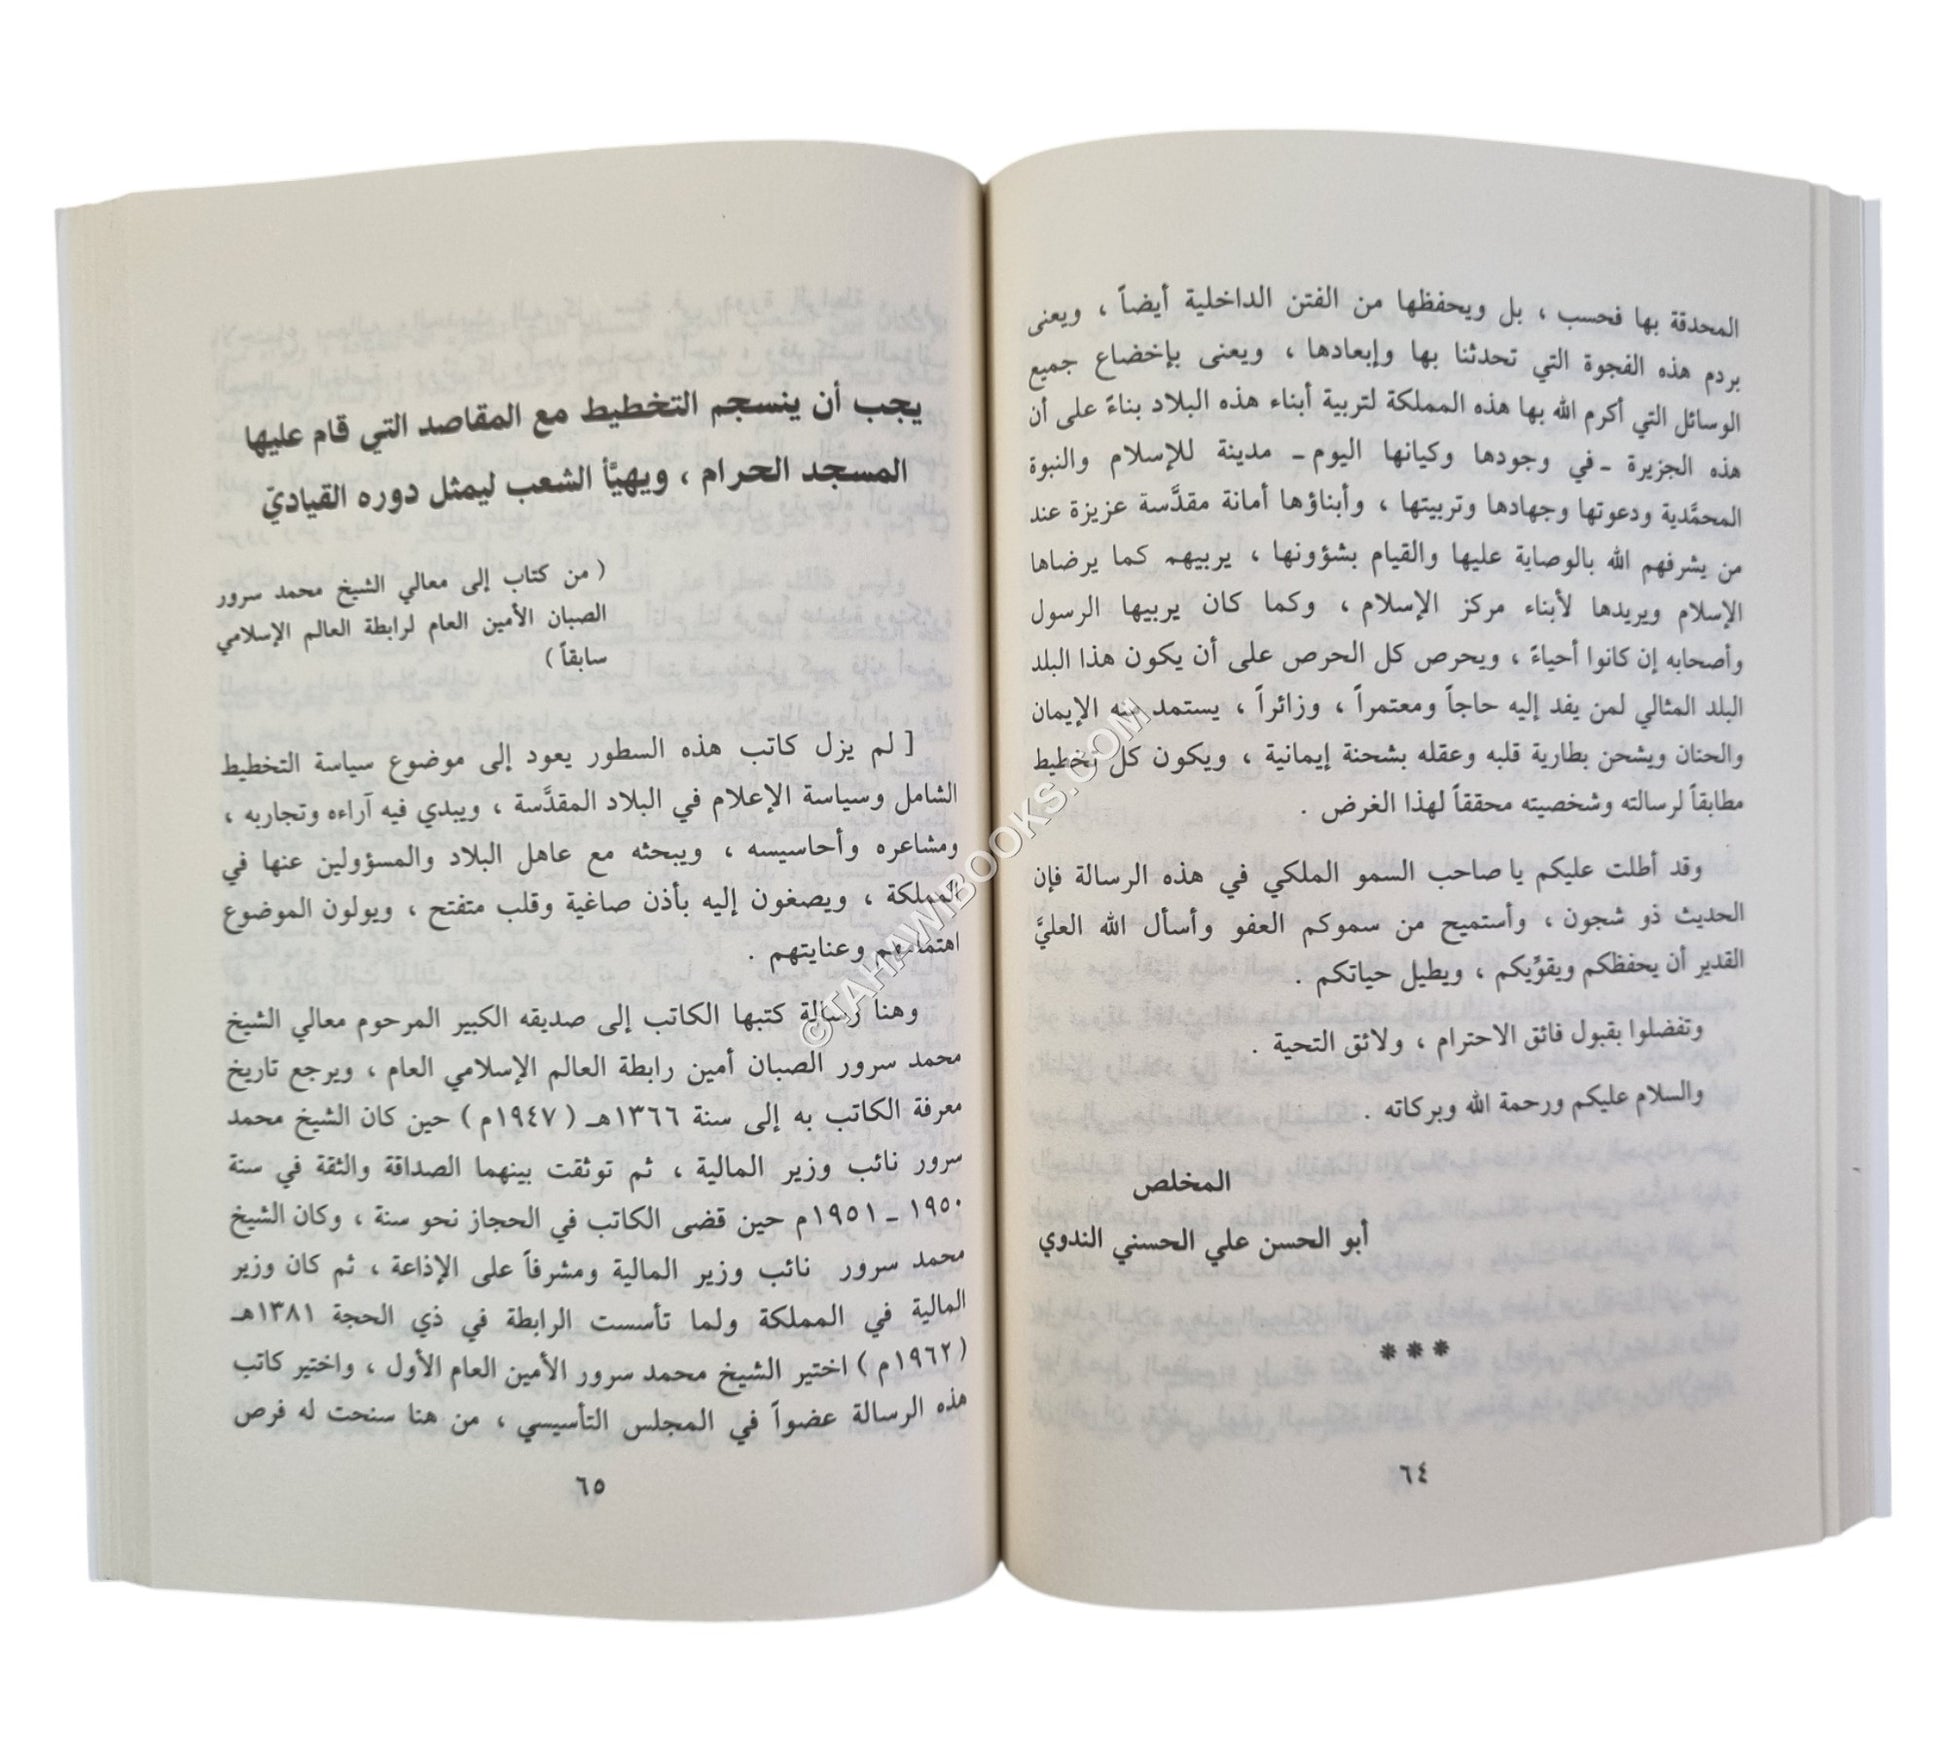 المحدقة بها فحسب ، بل ويحفظها من الفتن الداخلية أيضاً ، ويعنى
بردم هذه الفجوة التي تحدثنا بها وإبعادها ، ويعنى بإخضاع جميع
الوسائل التي أكرم الله بها هذه المملكة لتربية أبناء هذه البلاد بناءً على أن
هذه الجزيرة ـ في وجودها وكيانها اليوم ـ مدينة للإسلام والنبوة
المحمَّدية ودعوتها وجهادها وتربيتها ، وأبناؤها أمانة مقدَّسة عزيزة عند
من يشرفهم الله بالوصاية عليها والقيام بشؤونها ، يربيهم كما يرضاها
الإسلام ويريدها لأبناء مركز الإسلام ، وكما كان يربيها الرسول
وأصحابه إن كانوا أحياءً ، ويحرص كل الحرص على أن يكون هذا البلد
البلد المثالي لمن يفد إليه حاجاً ومعتمراً ، وزائراً ، يستمد منه الإيمان
والحنان ويشحن بطارية قلبه وعقله بشحنة إيمانية ، ويكون كل تخطيط
مطابقاً لرسالته وشخصيته محققاً لهذا الغرض .
وقد أطلت عليكم يا صاحب السمو الملكي في هذه الرسالة فإن
الحديث ذو شجون ، وأستميح من سموكم العفو وأسأل الله العليَّ
القدير أن يحفظكم ويقوِّيكم ، ويطيل حياتكم .
وتفضلوا بقبول فائق الاحترام ، ولائق التحية .
والسلام عليكم ورحمة الله وبركاته .
المخلص
أبو الحسن علي الحسني الندوي
* * *
٦٤
يجب أن ينسجم التخطيط مع المقاصد التي قام عليها
المسجد الحرام ، ويهيَّأ الشعب ليمثل دوره القياديّ
( من كتاب إلى معالي الشيخ محمد سرور
الصبان الأمين العام لرابطة العالم الإسلامي
سابقاً )
[ لم يزل كاتب هذه السطور يعود إلى موضوع سياسة التخطيط
الشامل وسياسة الإعلام في البلاد المقدَّسة ، ويبدي فيه آراءه وتجاربه ،
ومشاعره وأحاسيسه ، ويبحثه مع عاهل البلاد والمسؤولين عنها في
المملكة ، ويصغون إليه بأذن صاغية وقلب متفتح ، ويولون الموضوع
اهتمامهم وعنايتهم .
وهنا رسالة كتبها الكاتب إلى صديقه الكبير المرحوم معالي الشيخ
محمد سرور الصبان أمين رابطة العالم الإسلامي العام ، ويرجع تاريخ
معرفة الكاتب به إلى سنة ١٣٦٦هـ ( ١٩٤٧م ) حين كان الشيخ محمد
سرور نائب وزير المالية ، ثم توثقت بينهما الصداقة والثقة في سنة
١٩٥٠ ـ ١٩٥١م حين قضى الكاتب في الحجاز نحو سنة ، وكان الشيخ
محمد سرور نائب وزير المالية ومشرفاً على الإذاعة ، ثم كان وزير
المالية في المملكة ولما تأسست الرابطة في ذي الحجة ١٣٨١هـ
( ١٩٦٢م ) اختير الشيخ محمد سرور الأمين العام الأول ، واختير كاتب
هذه الرسالة عضواً في المجلس التأسيسي ، من هنا سنحت له فرص
٦٥
©TAHAWIBOOKS.COM